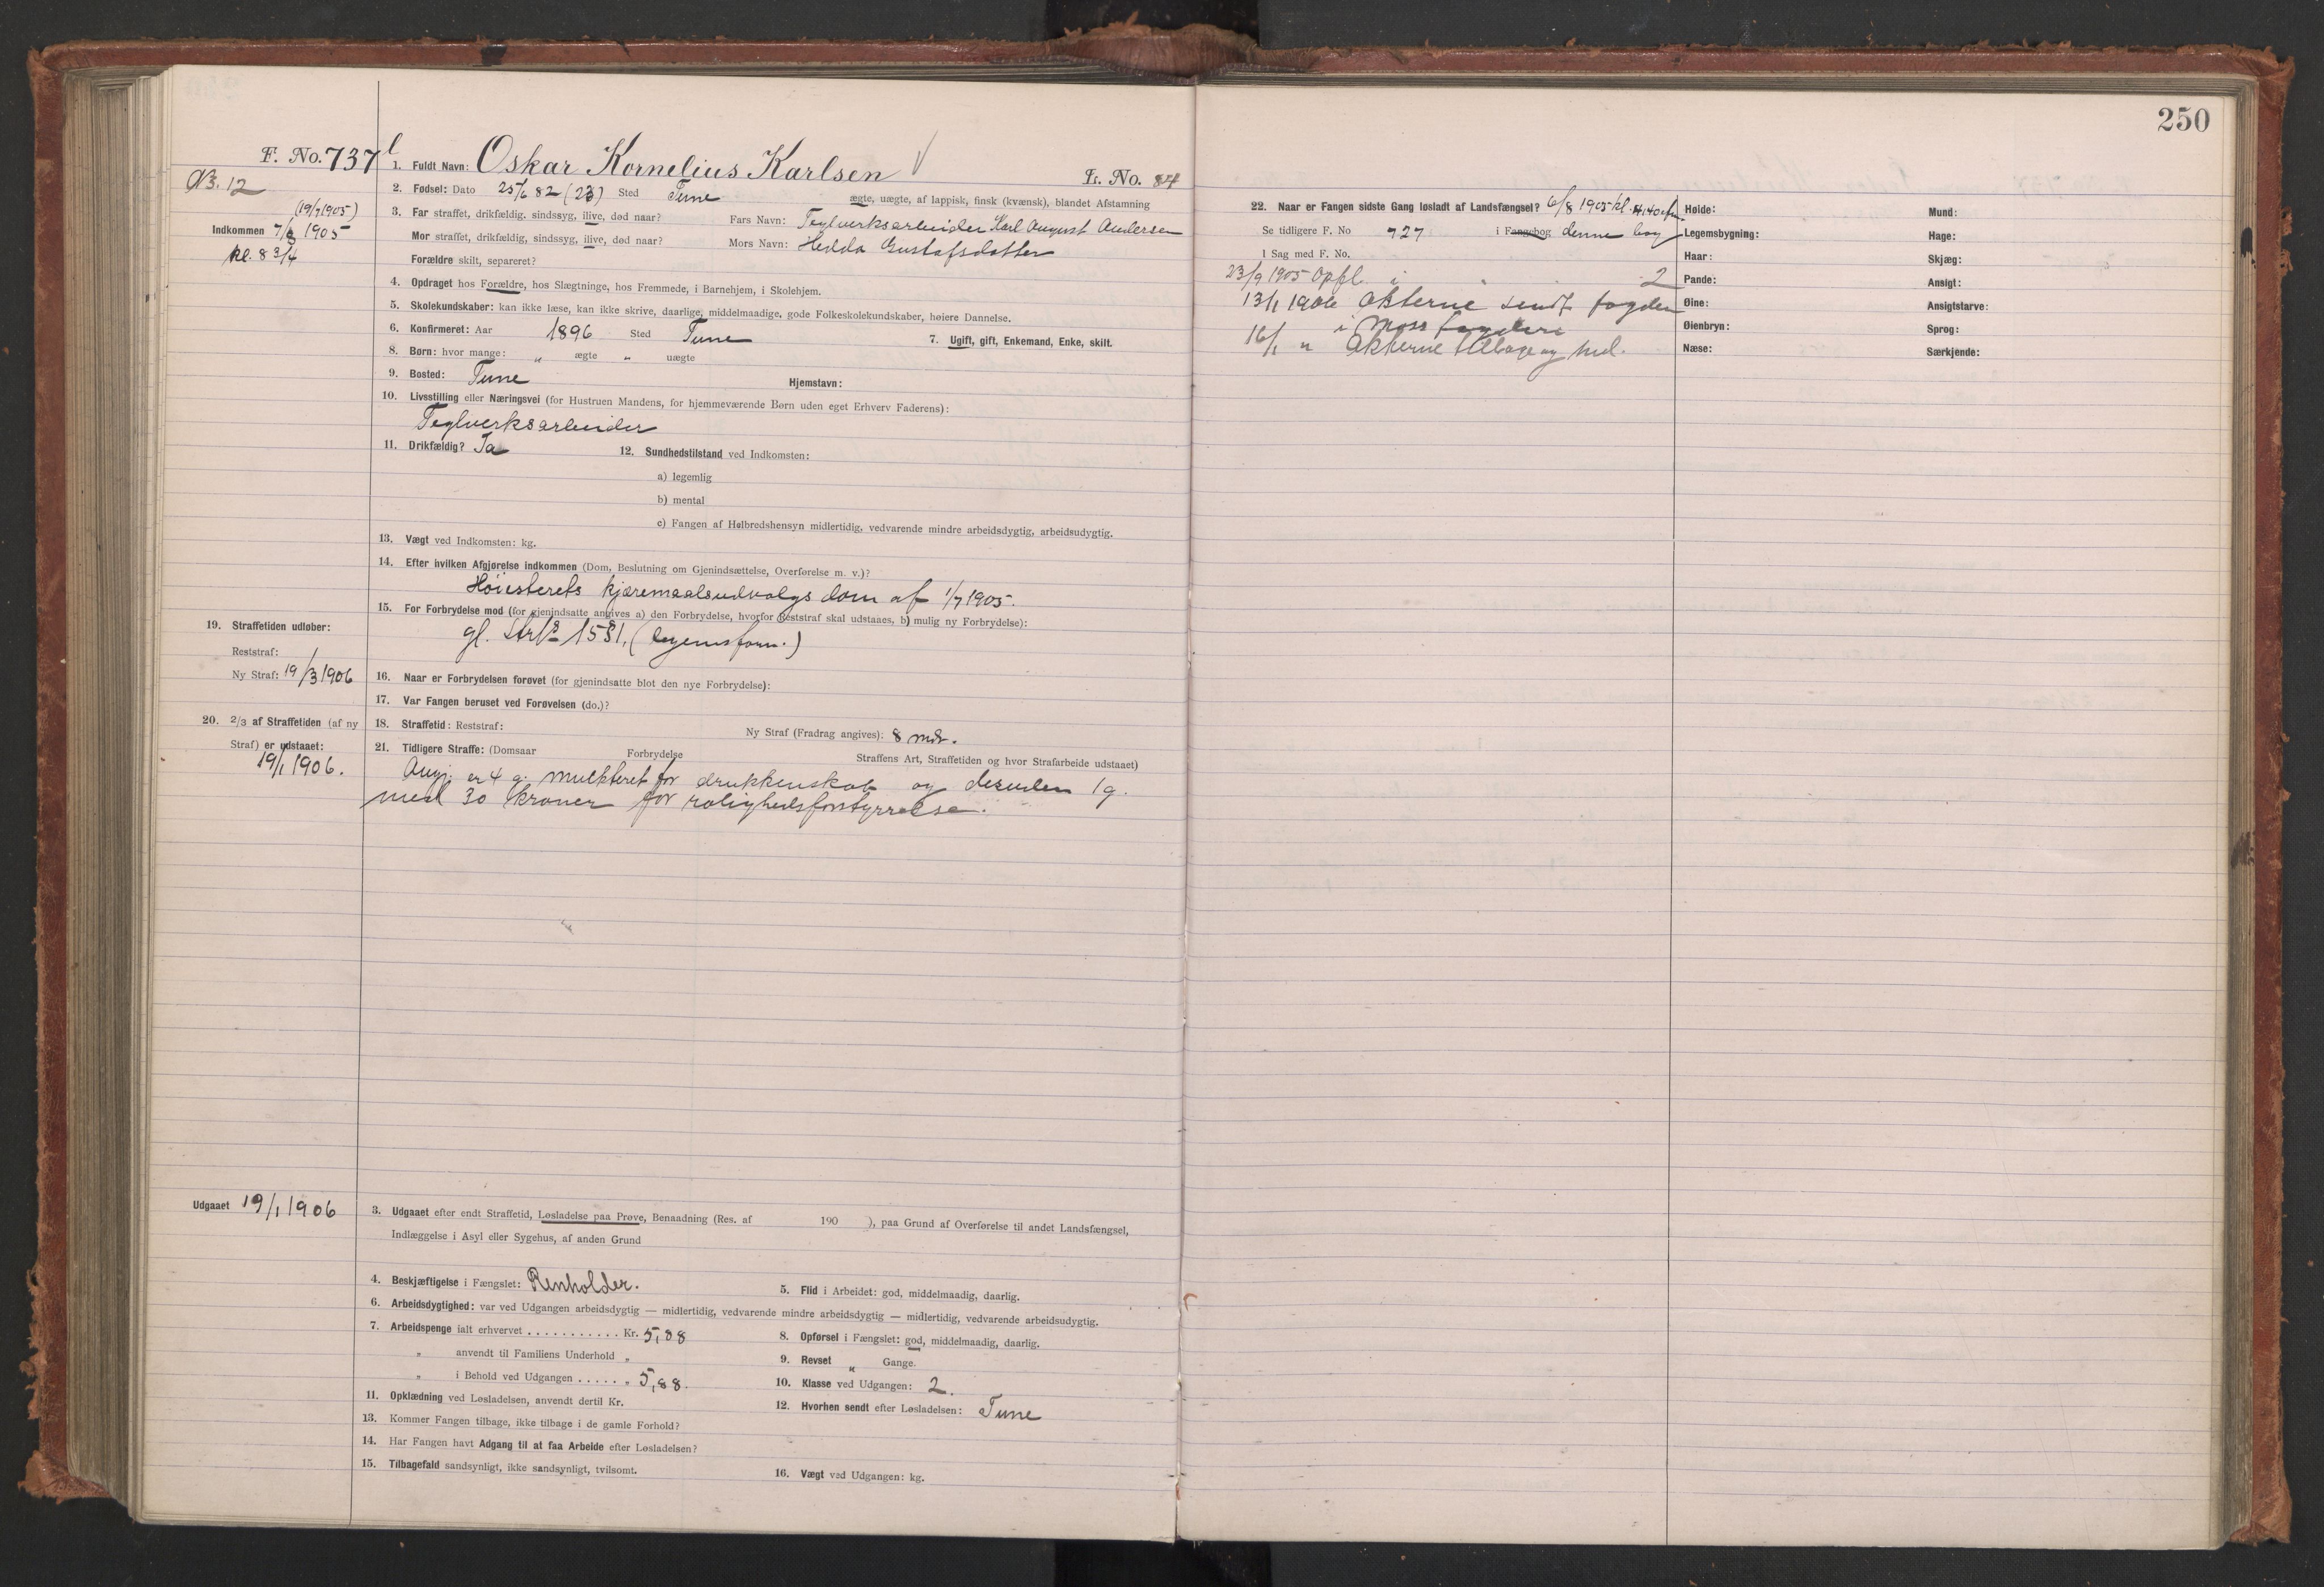 250
F. No. 737 l
B. 12
1. Fuldt Navn: Oskar Kornelius Karlsen
L. No. 84
2. Fødsel: Dato 25/6 82 (23) Sted Tune ægte, uægte, af lappisk, finsk (kvænsk), blandet Afstamning
(19/7 1905)
Indkommen 7/8 1905
kl. 8 3/4
3. Far straffet, drikfældig, sindssyg, ilive, død naar? Fars Navn: Teglverksarbeider Karl August Andersen
Mor straffet, drikfældig, sindssyg, ilive, død naar? Mors Navn: Hedda Gustafsdatter
Forældre skilt, separeret?
4. Opdraget hos Forældre, hos Slægtninge, hos Fremmede, i Barnehjem, i Skolehjem.
5. Skolekundskaber: kan ikke læse, kan ikke skrive, daarlige, middelmaadige, gode Folkeskolekundskaber, høiere Dannelse.
6. Konfirmeret: Aar 1896 Sted Tune 7. Ugift, gift, Enkemand, Enke, skilt.
8. Børn: hvor mange: „ ægte „ uægte
9. Bosted: Tune Hjemstavn:
10. Livsstilling eller Næringsvei (for Hustruen Mandens, for hjemmeværende Børn uden eget Erhverv Faderens):
Teglverksarbeider
11. Drikfældig? Ja 12. Sundhedstilstand ved Indkomsten:
a) legemlig
b) mental
c) Fangen af Helbredshensyn midlertidig, vedvarende mindre arbeidsdygtig, arbeidsudygtig.
13. Vægt ved Indkomsten: kg.
14. Efter hvilken Afgjørelse indkommen (Dom, Beslutning om Gjenindsættelse, Overførelse m. v.)?
Høiesterets kjæremaalsudvalgs dom af 1/7 1905.
15. For Forbrydelse mod (for gjenindsatte angives a) den Forbrydelse, hvorfor Reststraf skal udstaaes, b) mulig ny Forbrydelse):
gl. Strfl 15 § 1, (legemsforn.)
19. Straffetiden udløber:
Reststraf:
Ny Straf: 19/3 1906
16. Naar er Forbrydelsen forøvet (for gjenindsatte blot den nye Forbrydelse):
17. Var Fangen beruset ved Forøvelsen (do.)?
20. 2/3 af Straffetiden (af ny
Straf) er udstaaet:
19/1 1906.
18. Straffetid: Reststraf: Ny Straf (Fradrag angives): 8 mdr.
21. Tidligere Straffe: (Domsaar Forbrydelse Straffens Art, Straffetiden og hvor Strafarbeide udstaaet)
Angj. er 4 g. mulkteret for drukkenskab og desuden 1 g.
med 30 kroner for rolighedsforstyrrelse.
Udgaaet 19/1 1906
3. Udgaaet efter endt Straffetid, Løsladelse paa Prøve, Benaadning (Res. af 190 ), paa Grund af Overførelse til andet Landsfængsel,
Indlæggelse i Asyl eller Sygehus, af anden Grund
4. Beskjæftigelse i Fængslet: Renholder. 5. Flid i Arbeidet: god, middelmaadig, daarlig.
6. Arbeidsdygtighed: var ved Udgangen arbeidsdygtig — midlertidig, vedvarende mindre arbeidsdygtig — midlertidig, vedvarende arbeidsudygtig.
7. Arbeidspenge ialt erhvervet ........... Kr. 5,88 8. Opførsel i Fængslet: god, middelmaadig, daarlig.
„ anvendt til Familiens Underhold „ 9. Revset „ Gange.
„ i Behold ved Udgangen ..... „ 5,88. 10. Klasse ved Udgangen: 2.
11. Opklædning ved Løsladelsen, anvendt dertil Kr. 12. Hvorhen sendt efter Løsladelsen: Tune
13. Kommer Fangen tilbage, ikke tilbage i de gamle Forhold?
14. Har Fangen havt Adgang til at faa Arbeide efter Løsladelsen?
15. Tilbagefald sandsynligt, ikke sandsynligt, tvilsomt. 16. Vægt ved Udgangen: kg.
22. Naar er Fangen sidste Gang løsladt af Landsfængsel? 6/8 1905 kl.
Se tidligere F. No 727 i Fangebog denne bog
I Sag med F. No.
23/9 1905 Opfl. i „ 2
13/1 1906 Akterne sendt fogden
i Moss fogderi
16/1 „ Akterne tilbage og
Høide: Mund:
Legemsbygning: Hage:
Haar: Skjæg:
Pande: Ansigt:
Øine: Ansigtstarve:
Øienbryn: Sprog:
Næse: Særkjende: